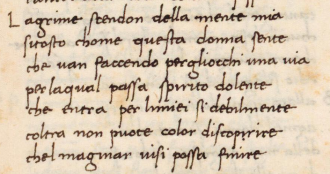 Lagrime scendon della mente mia
sitosto chome questa donna sente
che van faccendo pergliocchi una via
perlaqual passa spirito dolente
che entra per limiei si debilmente
coltra non puote color discoprire
chel maginar visi possa finire